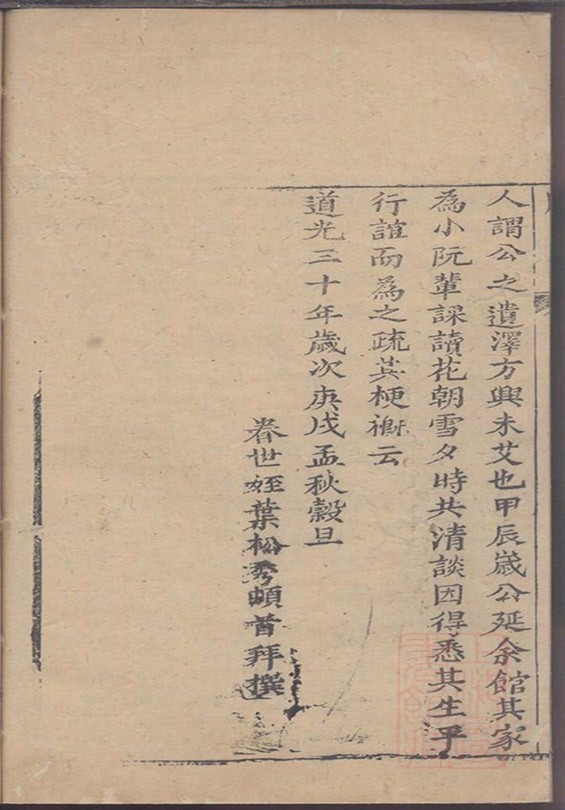 人謂公之遺澤方興未艾也甲辰歲公延余館其家
為小阮輩課讀花朝雪夕時共清談因得悉其生平
行誼而為之疏其梗概云
道光三十年歲次庚戌孟秋穀旦
眷世姪葉松秀頓首拜撰